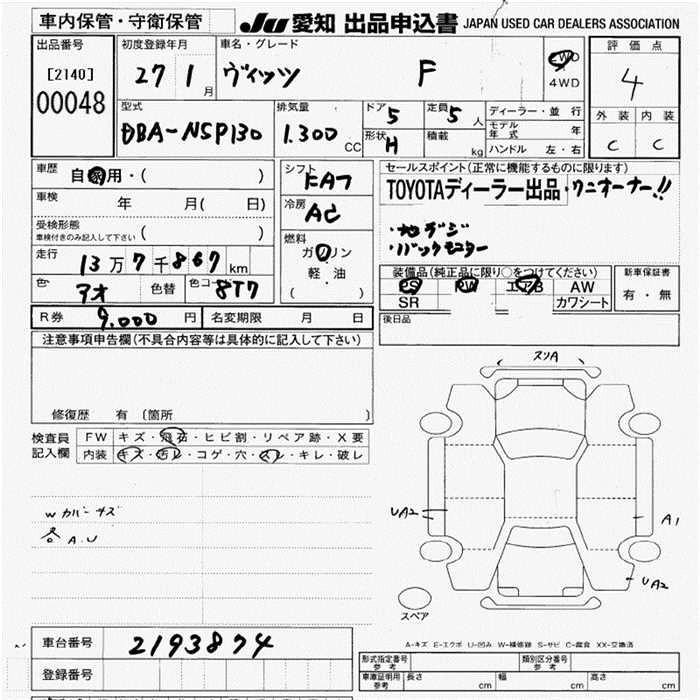 車内保管・守衛保管
JU 愛知 出品申込書 JAPAN USED CAR DEALERS ASSOCIATION
出品番号
[2140]
00048
初度登録年月
27 1 月
車名・グレード
ヴィッツ F
2WD
4WD
評価点
4
外装 内装
C C
型式
DBA-NSP130
排気量
1.300 CC
ドア 5
形状 H
定員 5 人
積載 kg
ディーラー・並行
モデル年式 年
ハンドル 左・右
車歴
自家用・( )
車検
年 月( 日)
受検形態
車検付きのみ記入して下さい ( )
走行
13万7千867km
色 アオ 色替 色コード 8T7
シフト
FAT
冷房
AC
燃料
ガソリン
軽・油
( )
セールスポイント(正常に機能するものに限ります)
TOYOTAディーラー出品・ワンオーナー!!
・地デジ
・バックモニター
装備品(純正品に限り○をつけてください)
PS PW エアB AW
SR カワシート
新車保証書
有・無
R券 9,000 円 名変期限 月 日
後日品
注意事項申告欄(不具合内容等は具体的に記入して下さい)
修復歴 有〔箇所 〕
検査員記入欄
FW キズ・飛石・ヒビ割・リペア跡・X要
内装 キズ・汚レ・コゲ・穴・スレ・キレ・破レ
Wカバーキズ
各A.U
スリA
UA2
A1
UA2
スペア
A-キズ E-エクボ U-凹み W-補修跡 S-サビ C-腐食 XX-交換済
車台番号 2193874
登録番号
形式指定番号 参考
類別区分番号 参考
車庫証明用 参考 長さ cm 幅 cm 高さ cm